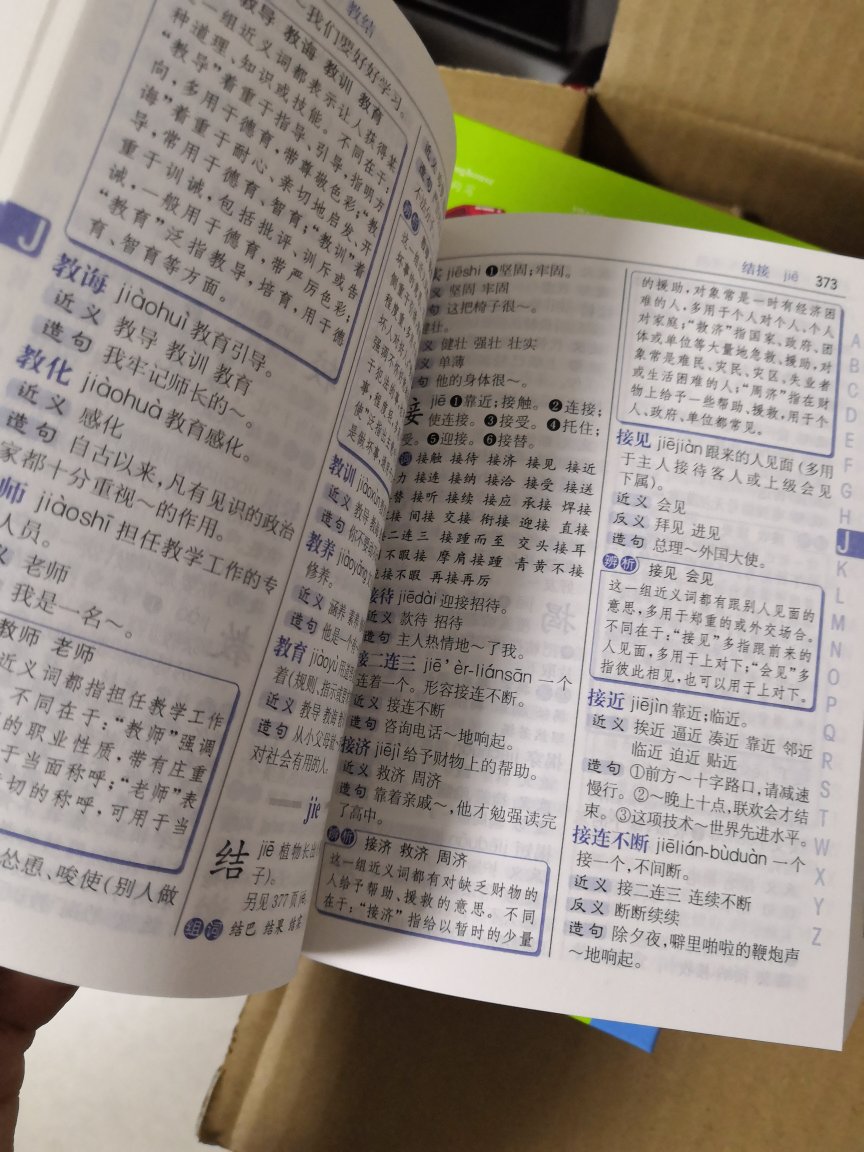 教结
～我们要好好学习。
教导 教诲 教训 教育
一组近义词都表示让人获得某
种道理、知识或技能。不同在于:
“教导”着重于指导、引导,指明方
向,多用于德育,带尊敬色彩;“教
诲”着重于耐心、亲切地启发、开
导,常用于德育、智育;“教训”着
重于训诫,包括批评、训斥或告
诫,一般用于德育,带严厉色彩;
“教育”泛指教导,培育,用于德
育、智育等方面。
J
教诲 jiàohuì 教育引导。
近义 教导 教训 教育
造句 我牢记师长的～。
教化 jiàohuà 教育感化。
近义 感化
造句 自古以来,凡有见识的政治
家都十分重视～的作用。
师 jiàoshī 担任教学工作的专
人员。
老师
我是一名～。
教师 老师
近义词都指担任教学工作
不同在于:“教师”强调
的职业性质,带有庄重
于当面称呼;“老师”表
切的称呼,可用于当
怂恿、唆使(别人做
教训 jiàoxùn
近义 教导 教诲
造句
教养 jiàoyǎng
修养。
近义 涵养 素养
造句 他是一个有
教育 jiàoyù
着(规则、指示或要
近义 教导 教诲
造句 从小父母就
对社会有用的人。
jie
结 jiē 植物长出
子)。
另见377页
组词 结巴 结果 结实
结接 jiē 373
实 jiēshi ❶坚固;牢固。
义 坚固 牢固
句 这把椅子很～。
健壮。
义 健壮 强壮 壮实
义 单薄
句 他的身体很～。
接 jiē ❶靠近;接触。❷连接;
使连接。❸接受。❹托住;
受。❺迎接。❻接替。
词 接触 接待 接济 接见 接近
力 接连 接纳 接洽 接受 接送
替 接听 接续 接应 承接 焊接
接 间接 交接 衔接 迎接 直接
接二连三 接踵而至 交头接耳
不暇接 摩肩接踵 青黄不接
接不暇 再接再厉
接待 jiēdài 迎接招待。
近义 款待 招待
造句 主人热情地～了我。
接二连三 jiē'èr-liánsān 一个
连着一个。形容接连不断。
近义 接连不断
造句 咨询电话～地响起。
接济 jiējì 给予财物上的帮助。
近义 救济 周济
造句 靠着亲戚～,他才勉强读完
了高中。
辨析 接济 救济 周济
这一组近义词都有对缺乏财物的
人给予帮助、援救的意思。不同
在于:“接济”指给以暂时的少量
的援助,对象常是一时有经济困
难的人,多用于个人对个人、个人
对家庭;“救济”指国家、政府、团
体或单位等大量地急救、援助,对
象常是难民、灾民、灾区、失业者
或生活困难的人;“周济”指在财
物上给予一些帮助、援救,用于个
人、政府、单位都常见。
接见 jiējiàn 跟来的人见面(多用
于主人接待客人或上级会见
下属)。
近义 会见
反义 拜见 进见
造句 总理～外国大使。
辨析 接见 会见
这一组近义词都有跟别人见面的
意思,多用于郑重的或外交场合。
不同在于:“接见”多指跟前来的
人见面,多用于上对下;“会见”多
指彼此相见,也可以用于上对下。
接近 jiējìn 靠近;临近。
近义 挨近 逼近 凑近 靠近 邻近
临近 迫近 贴近
造句 ①前方～十字路口,请减速
慢行。②～晚上十点,联欢会才结
束。③这项技术～世界先进水平。
接连不断 jiēlián-bùduàn 一个
接一个,不间断。
近义 接二连三 连续不断
反义 断断续续
造句 除夕夜,噼里啪啦的鞭炮声
～地响起。
A
B
C
D
E
F
G
H
J
K
L
M
N
O
P
Q
R
S
T
W
X
Y
Z